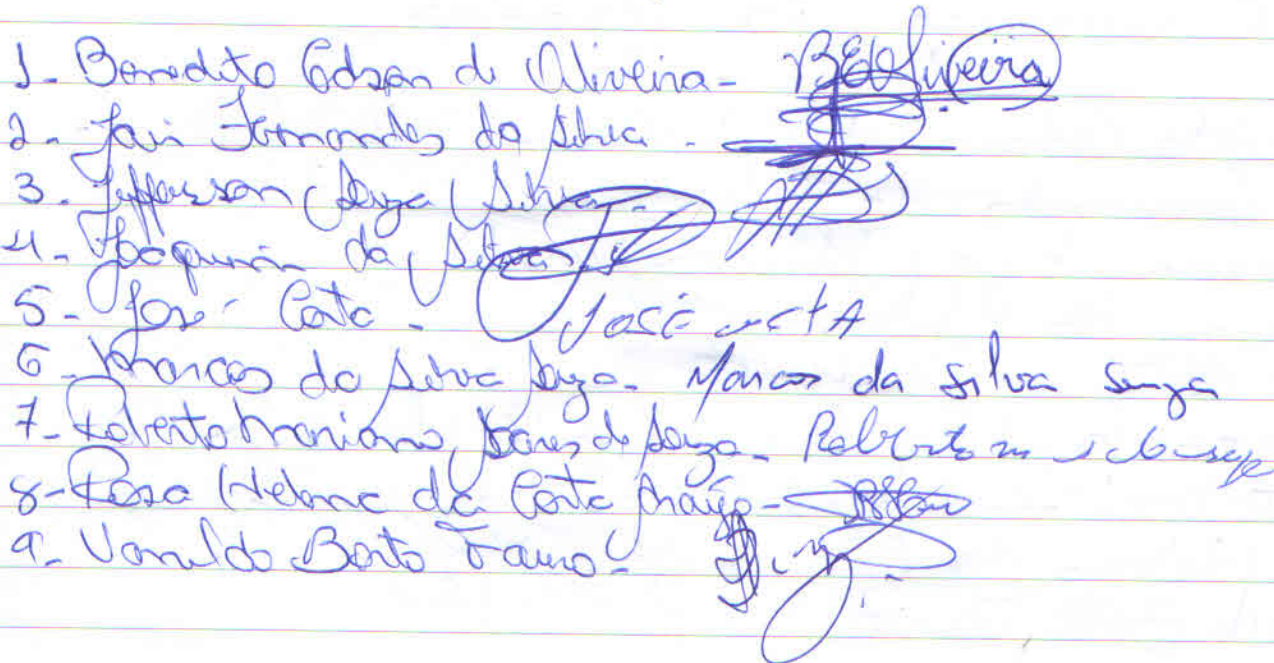 1- Benedito Edson de Oliveira - BEOliveira
2- Jair Fernandes da Silva -
3- Jefferson Souza Silva -
4- Joaquim da Silva
5- José Costa - José Costa
6- Marcos da Silva Souza - Marcos da Silva Souza
7- Roberto Mariano Soares de Souza - Roberto m
8- Rosa Helena da Costa Araújo -
9- Bento -